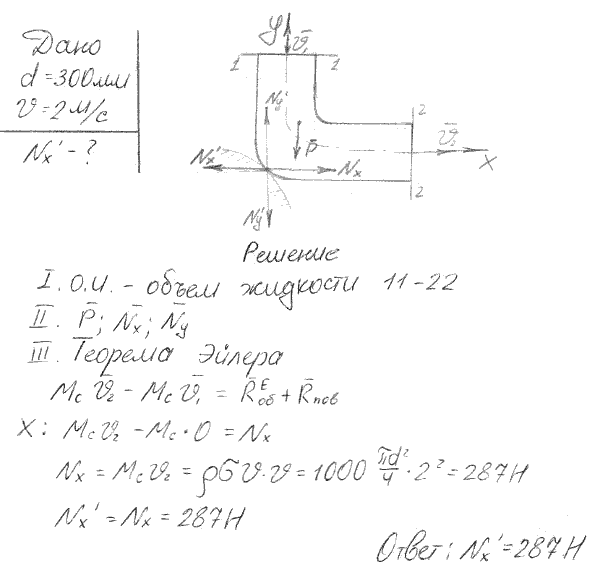 Дано
d = 300мм
v = 2 м/с
Nx' - ?
y
v̄₁
1
1
Ny'
2
v̄₂
P̄
x
Nx'
Nx
2
Ny'
Решение
I. О.И. - объем жидкости 11-22
II. P̄; N̄x; N̄y
III. Теорема Эйлера
Mc v̄₂ - Mc v̄₁ = R̄ᴱоб + R̄пов
X: Mc v₂ - Mc·0 = Nx
Nx = Mc v₂ = ρσv·v = 1000 πd²/4 · 2² = 287Н
Nx' = Nx = 287Н
Ответ: Nx' = 287Н